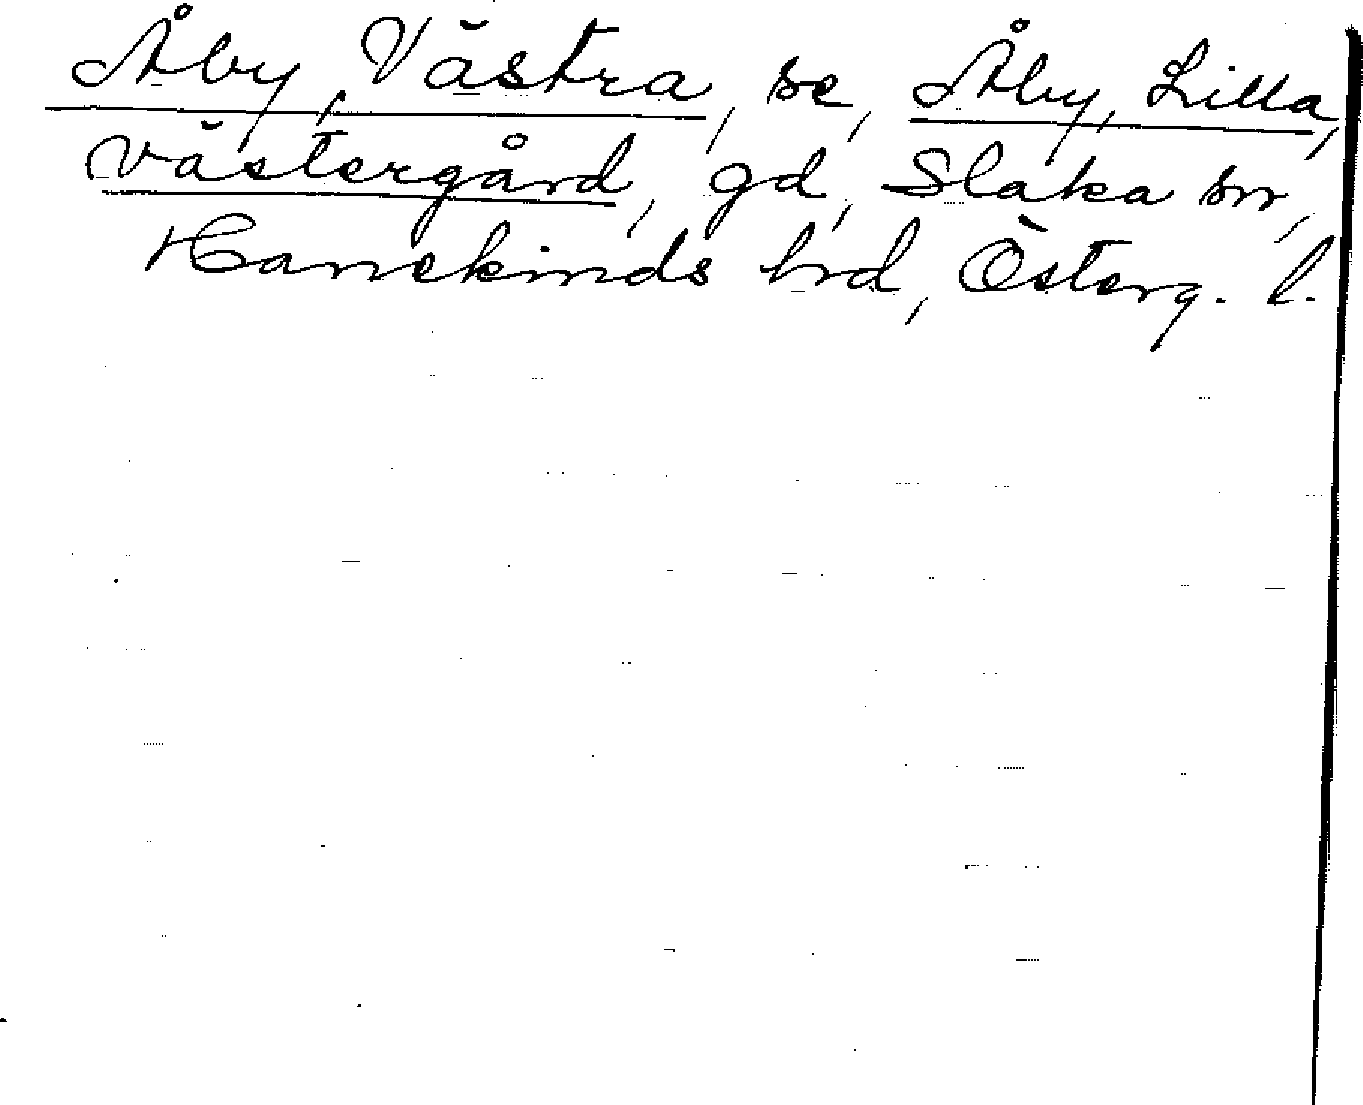 Åby, Västra, se, Åby, Lilla,
Västergård, gd, Slaka sn,
Hanekinds hd, Österg. l.